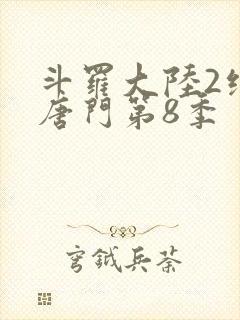 斗羅大陸2
唐門第8季
穹鉞兵荼